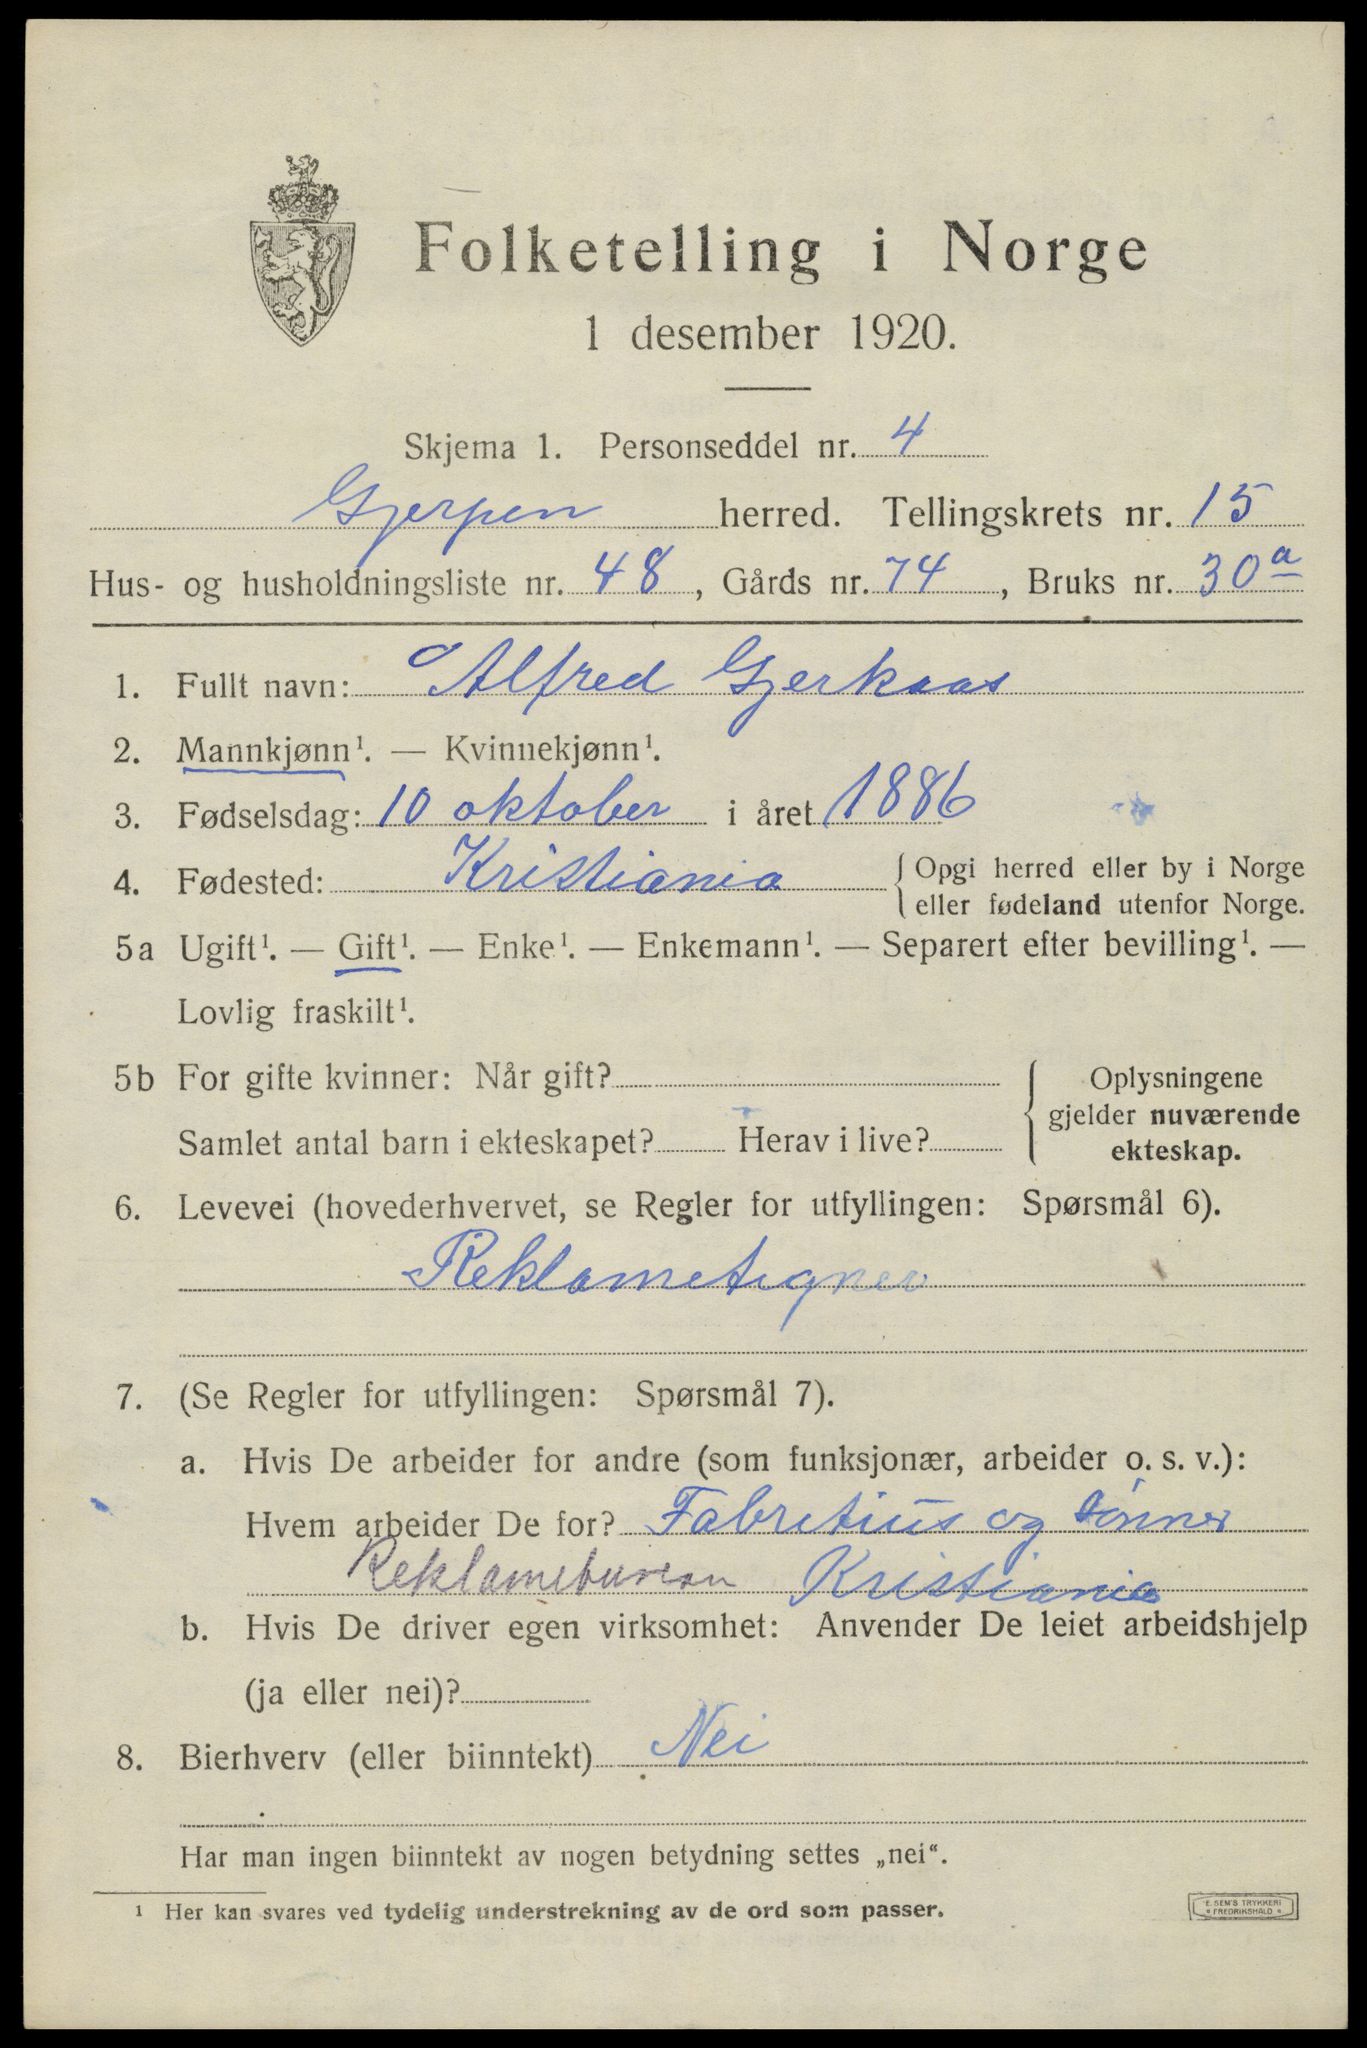 Folketelling i Norge
1 desember 1920.
Skjema 1. Personseddel nr. 4
Gjerpen herred. Tellingskrets nr. 15
Hus- og husholdningsliste nr. 48, Gårds nr. 74, Bruks nr. 30a
1. Fullt navn: Alfred Gjerkaas
2. Mannkjønn¹. — Kvinnekjønn¹.
3. Fødselsdag: 10 oktober i året 1886
4. Fødested: Kristiania { Opgi herred eller by i Norge
eller fødeland utenfor Norge.
5a Ugift¹. — Gift¹. — Enke¹. — Enkemann¹. — Separert efter bevilling¹. —
Lovlig fraskilt¹.
5b For gifte kvinner: Når gift? { Oplysningene
gjelder nuværende
Samlet antal barn i ekteskapet? Herav i live? ekteskap.
6. Levevei (hovederhvervet, se Regler for utfyllingen: Spørsmål 6).
Reklametigner
7. (Se Regler for utfyllingen: Spørsmål 7).
a. Hvis De arbeider for andre (som funksjonær, arbeider o. s. v.):
Hvem arbeider De for? Fabretius og Sønner
Reklamebureau Kristiania
b. Hvis De driver egen virksomhet: Anvender De leiet arbeidshjelp
(ja eller nei)?
8. Bierhverv (eller biinntekt) Nei
Har man ingen biinntekt av nogen betydning settes „nei“.
¹ Her kan svares ved tydelig understrekning av de ord som passer.
E. SEM'S TRYKKERI
FREDRIKSHALD